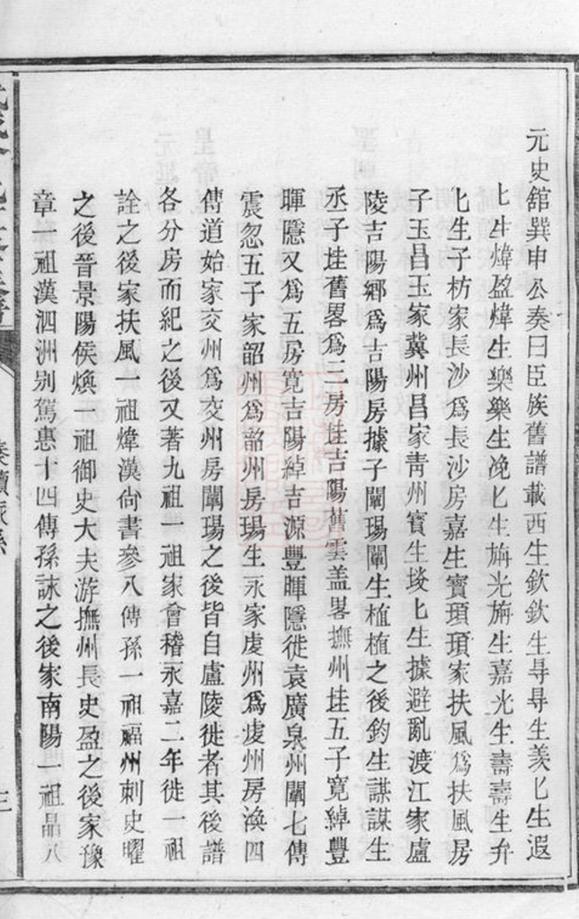 元史舘巽申公奏曰臣族舊譜載西生欽欽生尋尋生羨匕生遐
匕生煒盈煒生樂樂生浼匕生旃光旃生嘉光生壽壽生弁
匕生子枋家長沙為長沙房嘉生寶瑣瑣家扶風為扶風房
子玉昌玉家冀州昌家靑州寳生琰匕生據避亂渡江家盧
陵吉陽鄉為吉陽房據子闡瑒闡生植植之後鈞生謀謀生
丞子珪舊畧為三房珪吉陽舊雲盖畧撫州珪五子寬綽豐
暉隱又為五房寬吉陽綽吉源豐暉隱徙袁廣泉州闡七傳
震忽五子家韶州為韶州房瑒生永家虔州為虔州房渙四
傳道始家交州為交州房闡瑒之後皆自盧陵徙者其後譜
各分房而紀之後又著九祖一祖家會稽永嘉二年徙一祖
詮之後家扶風一祖煒漢尙書參八傳孫一祖福州刺史曜
之後晉景陽侯煥一祖御史大夫游撫州長史盈之後家豫
章一祖漢泗洲别駕惠十四傳孫詠之後家南陽一祖晶八
三